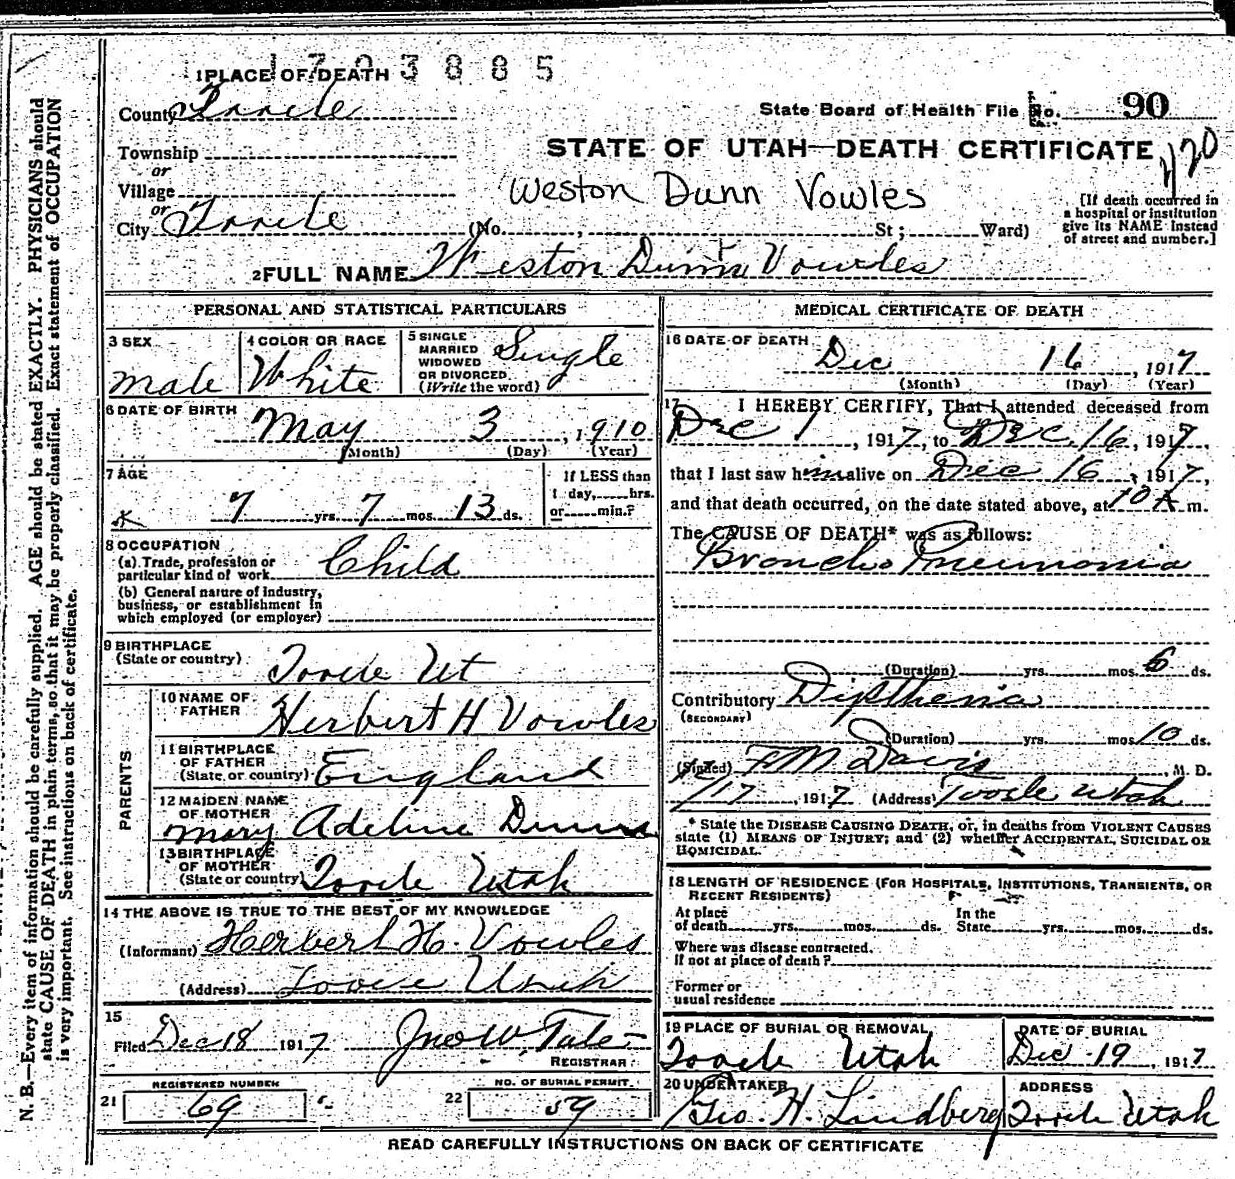 1793885
1 PLACE OF DEATH
County Tooele
State Board of Health File No. 90
Township
STATE OF UTAH—DEATH CERTIFICATE
or
Village
Weston Dunn Vowles
or
City Tooele (No. , St; Ward)
[If death occurred in
a hospital or institution
give its NAME instead
of street and number.]
2 FULL NAME Weston Dunn Vowles
PERSONAL AND STATISTICAL PARTICULARS
3 SEX
male
4 COLOR OR RACE
White
5 SINGLE
MARRIED
WIDOWED
OR DIVORCED
(Write the word)
Single
6 DATE OF BIRTH
May 3, 1910
(Month) (Day) (Year)
7 AGE
7 yrs. 7 mos. 13 ds.
If LESS than
1 day, hrs.
or min.?
8 OCCUPATION
(a) Trade, profession or
particular kind of work Child
(b) General nature of industry,
business, or establishment in
which employed (or employer)
9 BIRTHPLACE
(State or country) Tooele Ut
PARENTS
10 NAME OF
FATHER Herbert H Vowles
11 BIRTHPLACE
OF FATHER
(State or country) England
12 MAIDEN NAME
OF MOTHER
Mary Adeline Dunn
13 BIRTHPLACE
OF MOTHER
(State or country) Tooele Utah
14 THE ABOVE IS TRUE TO THE BEST OF MY KNOWLEDGE
(Informant) Herbert H. Vowles
(Address) Tooele Utah
15
Filed Dec 18 1917 Jno W. Tate
REGISTRAR
REGISTERED NUMBER
21 69
NO. OF BURIAL PERMIT
22 59
MEDICAL CERTIFICATE OF DEATH
16 DATE OF DEATH
Dec 16, 1917
(Month) (Day) (Year)
17 I HEREBY CERTIFY, That I attended deceased from
Dec 1, 1917, to Dec. 16, 1917,
that I last saw him alive on Dec 16, 1917,
and that death occurred, on the date stated above, at 10 A m.
The CAUSE OF DEATH* was as follows:
Broncho Pneumonia
(Duration) yrs. mos. 6 ds.
Contributory Diptheria
(SECONDARY)
(Duration) yrs. mos. 10 ds.
(Signed) F M Davis, M. D.
/17, 1917 (Address) Tooele Utah
* State the DISEASE CAUSING DEATH, or, in deaths from VIOLENT CAUSES
state (1) MEANS OF INJURY; and (2) whether ACCIDENTAL, SUICIDAL OR
HOMICIDAL.
18 LENGTH OF RESIDENCE (FOR HOSPITALS, INSTITUTIONS, TRANSIENTS, OR
RECENT RESIDENTS)
At place
of death yrs. mos. ds.
In the
State yrs. mos. ds.
Where was disease contracted.
if not at place of death?
Former or
usual residence
19 PLACE OF BURIAL OR REMOVAL
Tooele Utah
DATE OF BURIAL
Dec 19, 1917
20 UNDERTAKER
Geo. H. Lindberg
ADDRESS
Tooele Utah
READ CAREFULLY INSTRUCTIONS ON BACK OF CERTIFICATE
N. B.—Every item of information should be carefully supplied. AGE should be stated EXACTLY. PHYSICIANS should
state CAUSE OF DEATH in plain terms, so that it may be properly classified. Exact statement of OCCUPATION
is very important. See instructions on back of certificate.